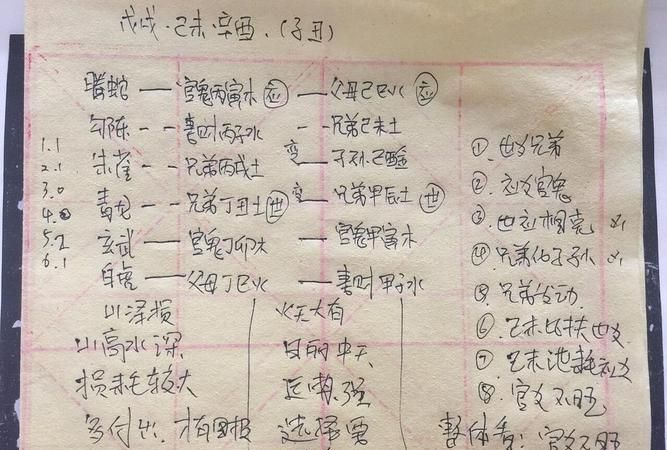 戊戌·己未·辛酉.(子丑)
腾蛇 — 官鬼丙寅木 应 — 父母己巳火 应
勾陈 - - 妻财丙子水 - - 兄弟己未土
1.1 朱雀 - - 兄弟丙戌土 变 — 子孙己酉金
2.1
3.0 青龙 - - 兄弟丁丑土 世 变 — 兄弟甲辰土 世
4.0
5.2 玄武 — 官鬼丁卯木 — 官鬼甲寅木
6.1 白虎 — 父母丁巳火 — 妻财甲子水
山泽损 火天大有
山高水深 日丽中天
损耗较大
多付出.有回报 选择要
① 世爻兄弟
② 应爻官鬼
③ 世应相克
④ 兄弟化子孙
⑤ 兄弟发动
⑥ 乙未比扶世爻
⑦ 乙未泄耗应爻
⑧ 官爻不旺
整体看:官爻不旺